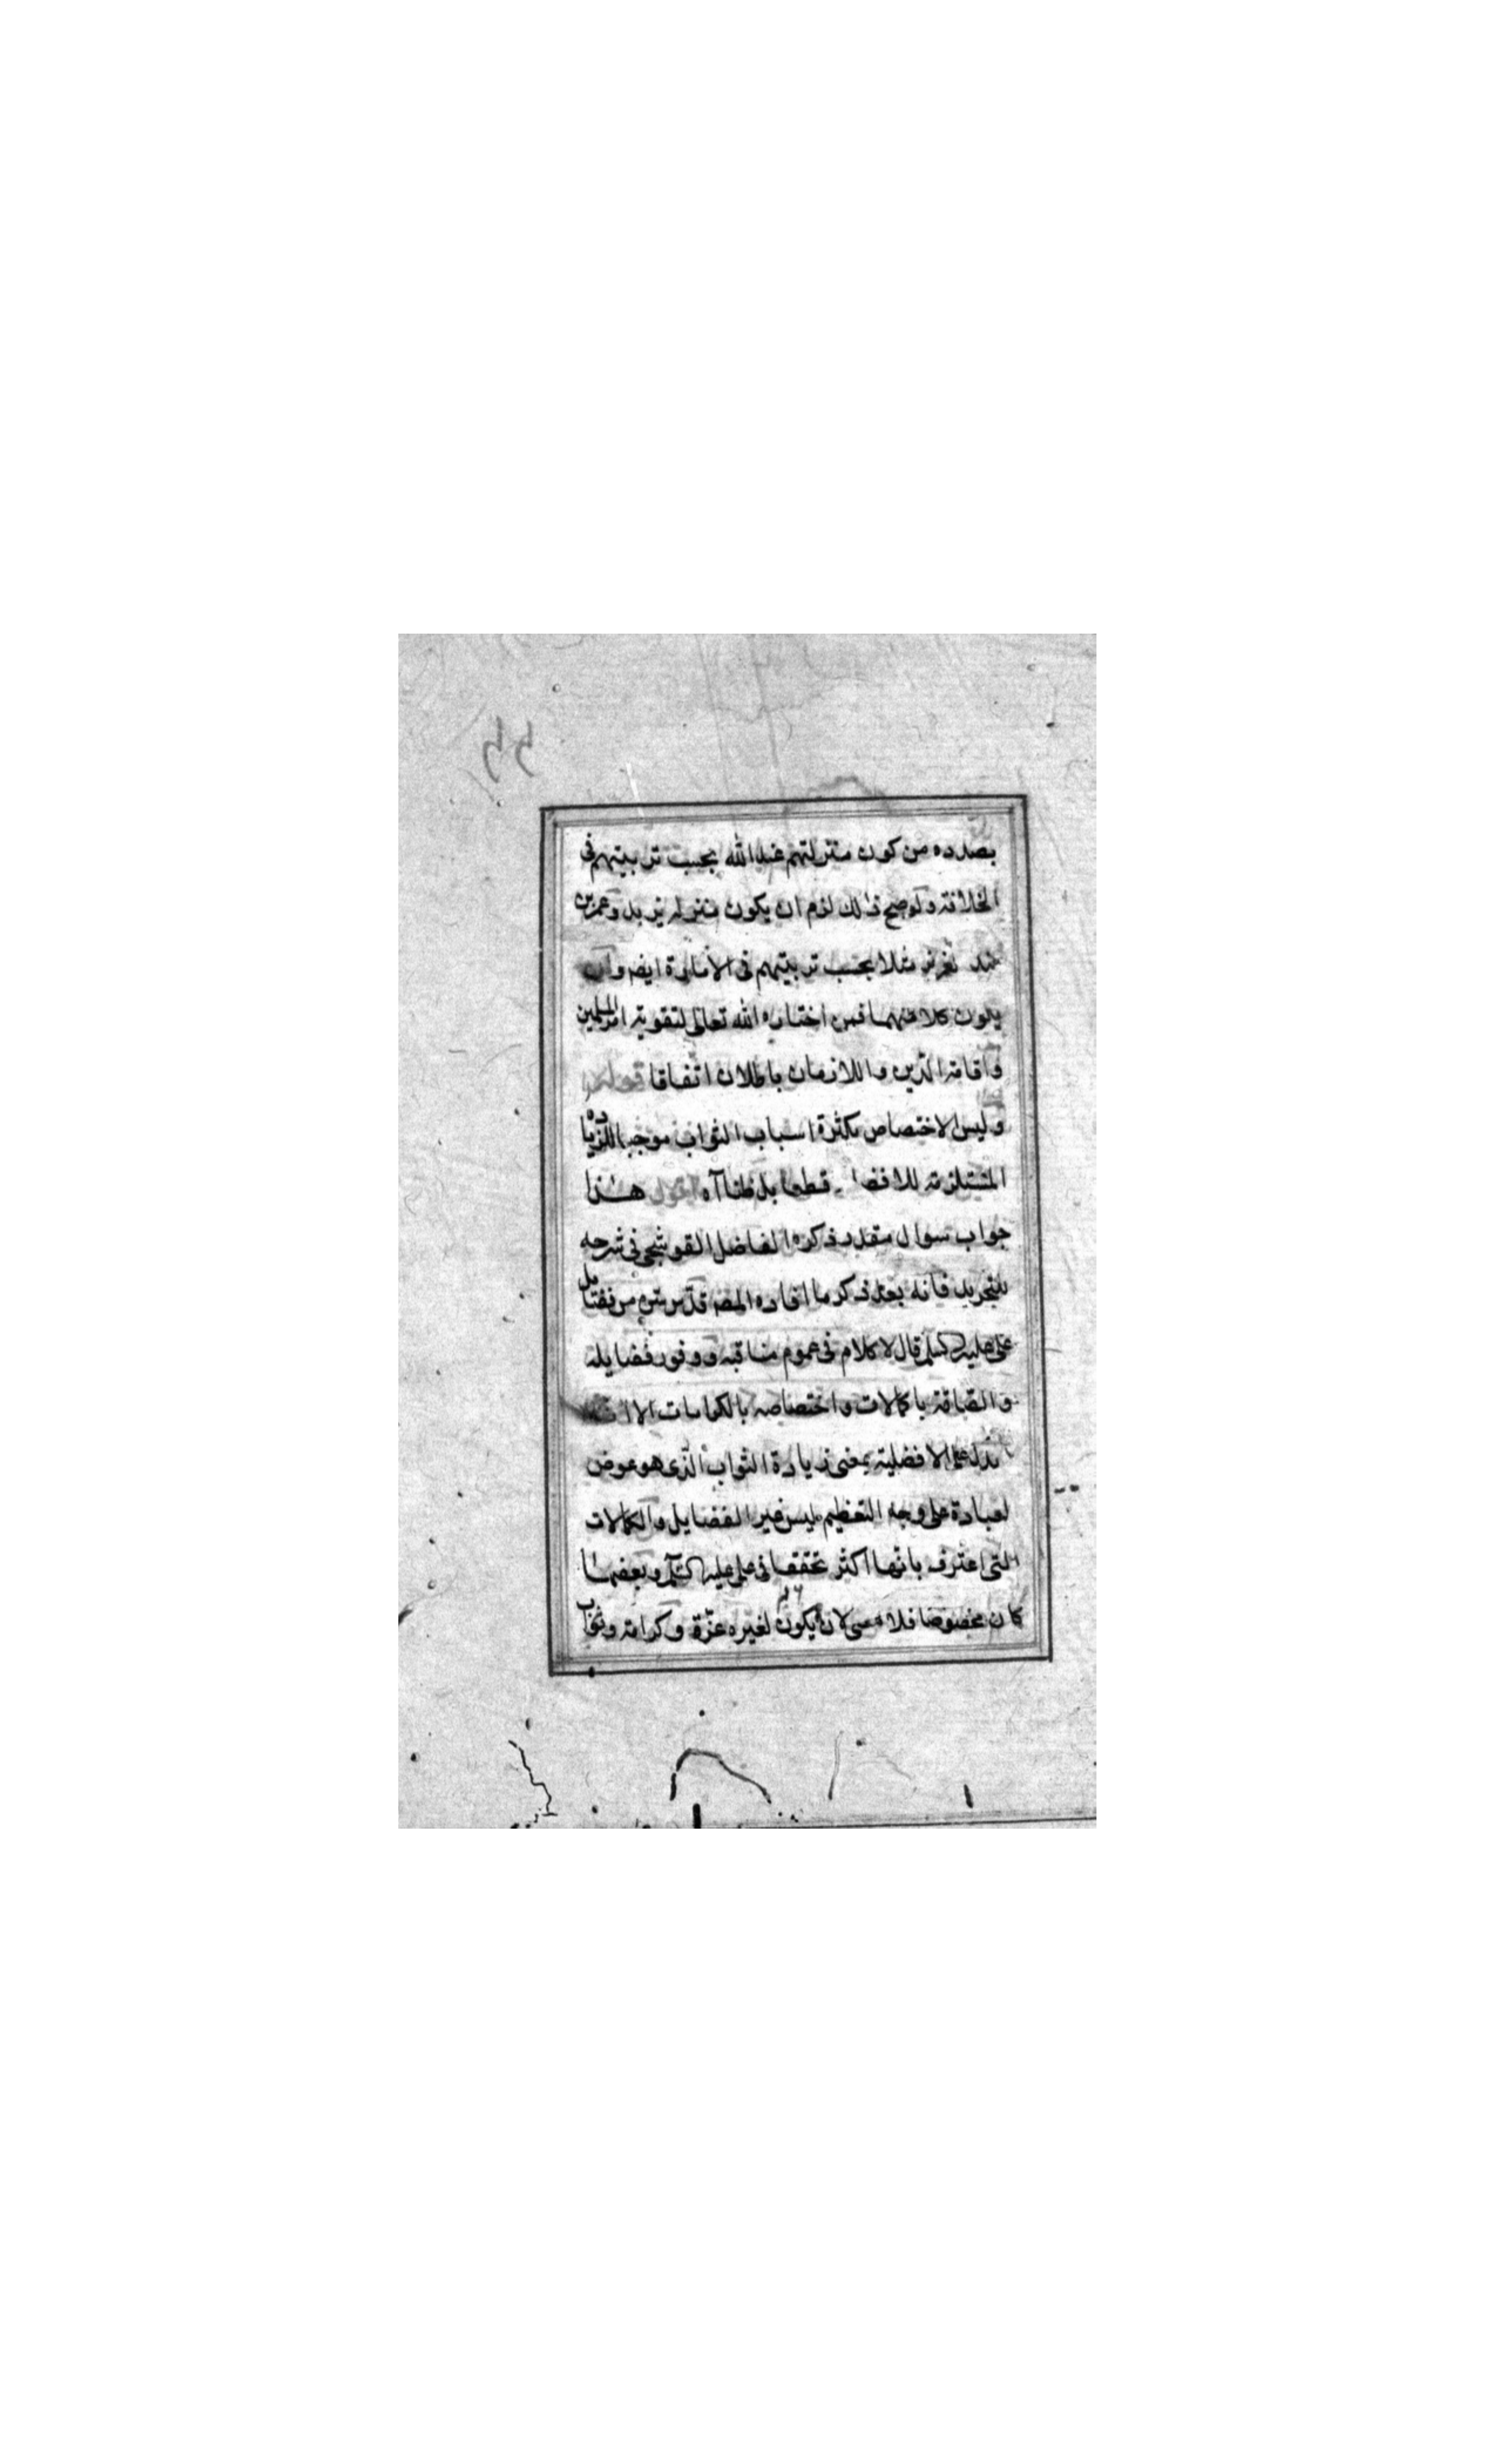 بصدده من كون منزلتهم عند الله بحسب تربيتهم فى
الخلافة ولو صح ذلك لزم ان يكون منزلة يزيد وعمر بن
عبد العزيز مثلا بحسب تربيتهم فى الأمارة ايضا وان
يكون كلا منهما فمن اختاره الله تعالى لتقوية امر المسلمين
واقامة الدّين واللازمان باطلان اتفاقا قوله
وليس الاختصاص بكثرة اسباب الثواب موجبا للزيادة
المستلزمة للافضلية قطعا بل ظنا آه اقول هذا
جواب سوال مقدر ذكره الفاضل القوشجى فى شرحه
للتجريد فانه بعد ذكر ما افاده المصه قدّس سرّه من فضايل
على عليه السلم قال لا كلام فى عموم مناقبه ووفور فضايله
واتصافه بالكمالات واختصاصه بالكرامات الا انه
لا يدل على الافضلية بمعنى زيادة الثواب الذّى هو عوض
لعبادة على وجه التعظيم ليس غير الفضايل والكمالات
التى اعترف بانّها اكثر تحققا فى على عليه السلم وبعضها
كان مخصوصا فلا معنى لان يكون لغيره عزّة وكرامة وثواب